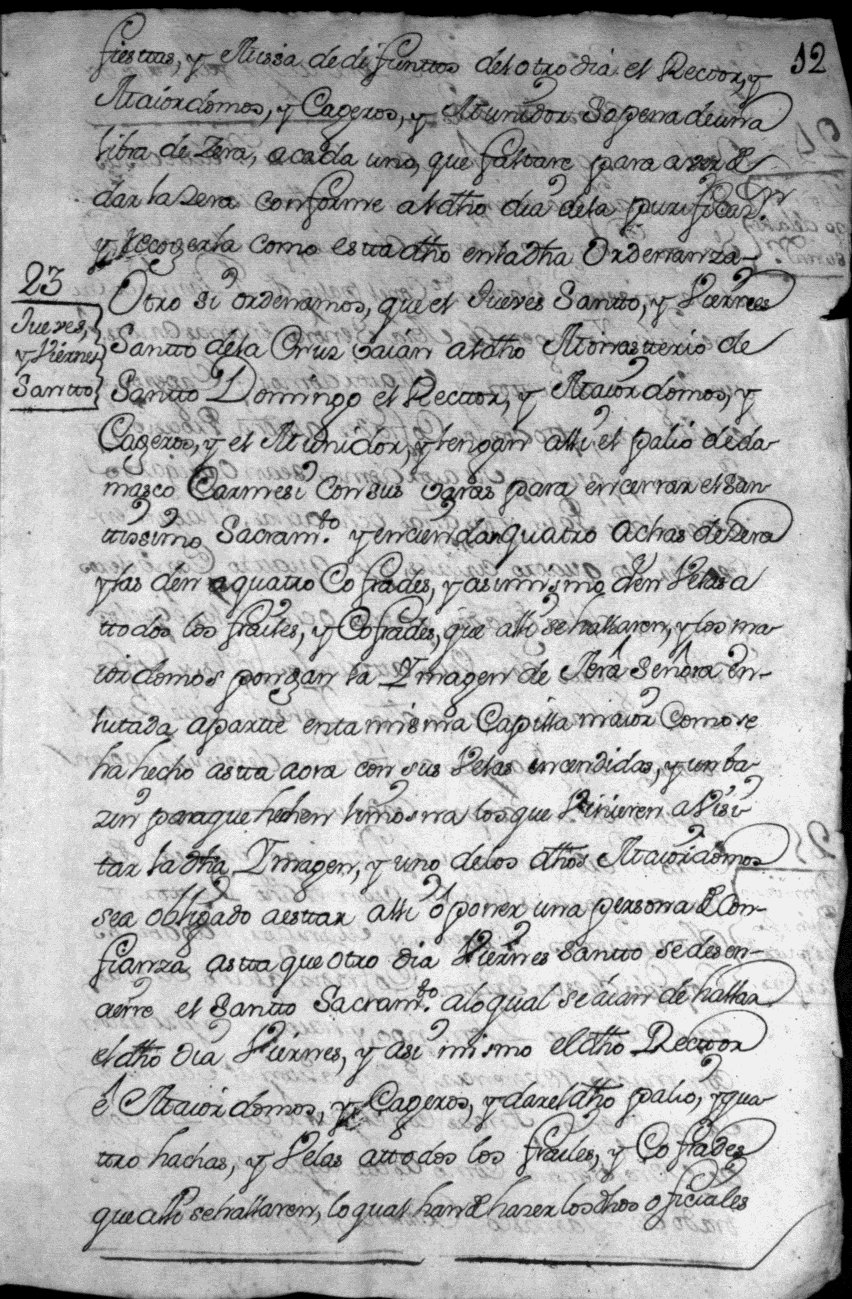 12
fiesttas, y Missa de difunttos del otro dia el Recttor, y
Maiordomos, y Cageros, y Munidor Sopena de una
libra de Zera, a cada uno, que faltare para
dar la Zera conforme al dho dia de la purificaz.on
y recogerla como estta dho en la dha Ordenanza-
23
Jueves,
y Viernes
Santto
Otro si ordenamos, que el Jueves Santto, y Viernes
Santto de la Cruz vaian al dho Monastterio de
Santto Domingo el Recttor, y Maiordomos, y
Cageros, y el Munidor, y tengan alli el palio de da-
masco Carmesi con sus varas para encerrar el San-
ttissimo Sacram.to y enciendan quatro achas de Zera
y las den a quatro Cofrades, y asimismo den Velas a
ttodos los frailes, y Cofrades, que alli se hallaren, y los ma-
iordomos pongan la Imagen de Nrâ Señora en-
lutada apartte en la misma Capilla maior Como se
ha hecho astta aora con sus Velas encendidas, y un ba-
zin para que hechen limosna los que Vinieren a Visi-
tar la dha Imagen, y uno de los dhos Maiordomos
sea obligado a esttar alli ó poner una persona de Con-
fianza astta que otro dia Viernes Santto se desen-
zierre el Santto Sacram.to a lo qual se aian de hallar
el dho dia Viernes, y asi mismo el dho Recttor
é Maiordomos, y Cageros, y dar el dho palio, y qua-
ttro hachas, y Velas a ttodos los frailes, y Cofrades
que alli se hallaren, lo qual han de hazer los dhos oficiales